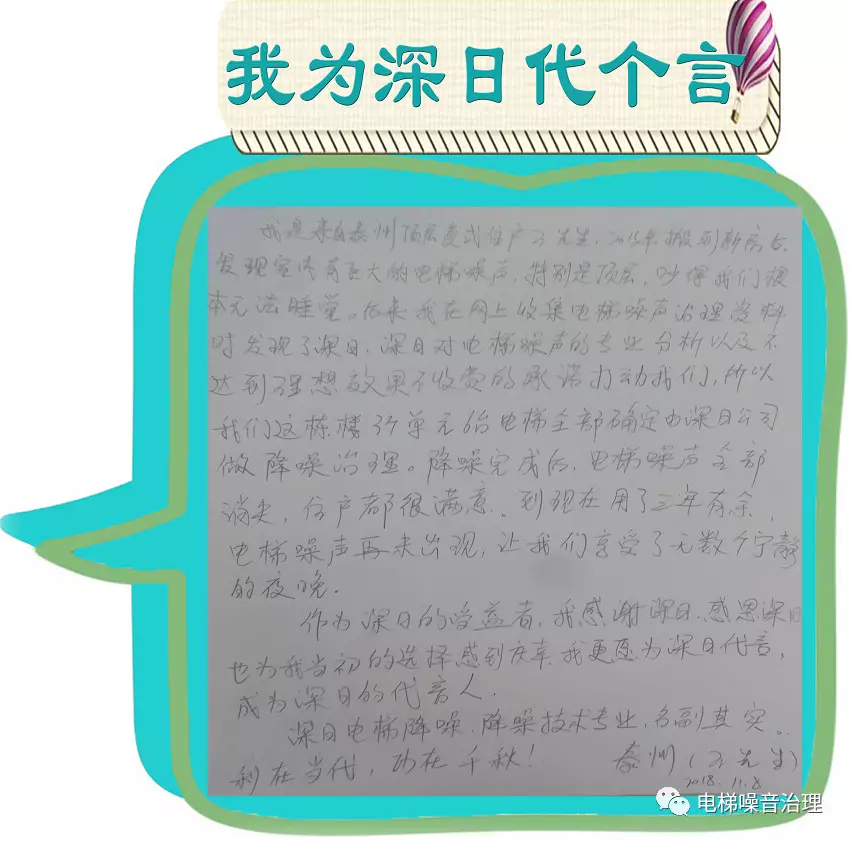 我为深日代个言
我是来自泰州顶层复式住户王先生，2015年搬到新房后
发现室内有巨大的电梯噪声，特别是顶层，吵得我们根
本无法睡觉。后来我在网上收集电梯噪声治理资料
时发现了深日，深日对电梯噪声的专业分析以及不
达到理想效果不收费的承诺打动我们，所以
我们这栋楼3个单元6台电梯全部确定由深日公司
做降噪治理。降噪完成后，电梯噪声全部
消失，住户都很满意。到现在用了三年有余，
电梯噪声再未出现，让我们享受了无数个宁静
的夜晚.
作为深日的受益者，我感谢深日，感恩深日
也为我当初的选择感到庆幸，我更愿为深日代言，
成为深日的代言人.
深日电梯降噪，降噪技术专业，名副其实。
利在当代，功在千秋！ 泰州（王先生）
2018.11.8
电梯噪音治理